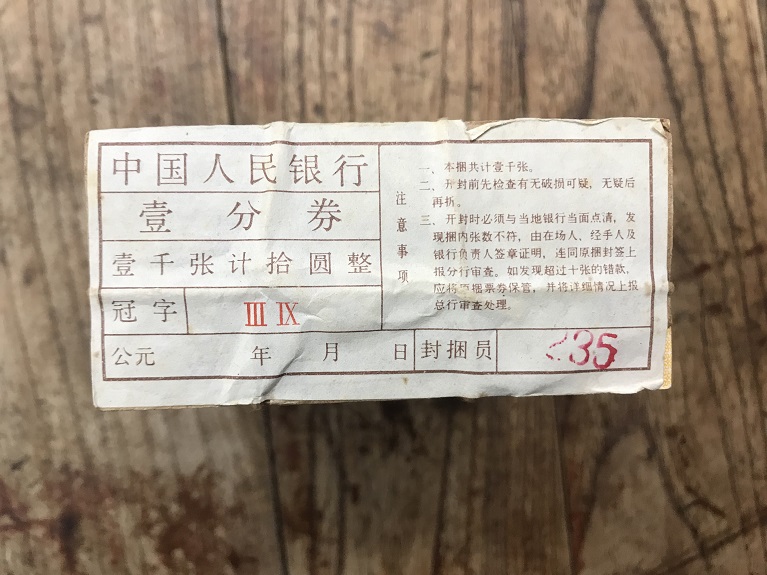 中国人民银行
壹分券
壹千张计拾圆整
冠字 ⅢⅨ
公元 年 月 日 封捆员 235
注意事项
一、本捆共计壹千张。
二、开封前先检查有无破损可疑，无疑后
再拆。
三、开封时必须与当地银行当面点清，发
现捆内张数不符，由在场人、经手人及
银行负责人签章证明，连同原捆封签上
报分行审查。如发现超过十张的错款，
应将原捆票券保管，并将详细情况上报
总行审查处理。